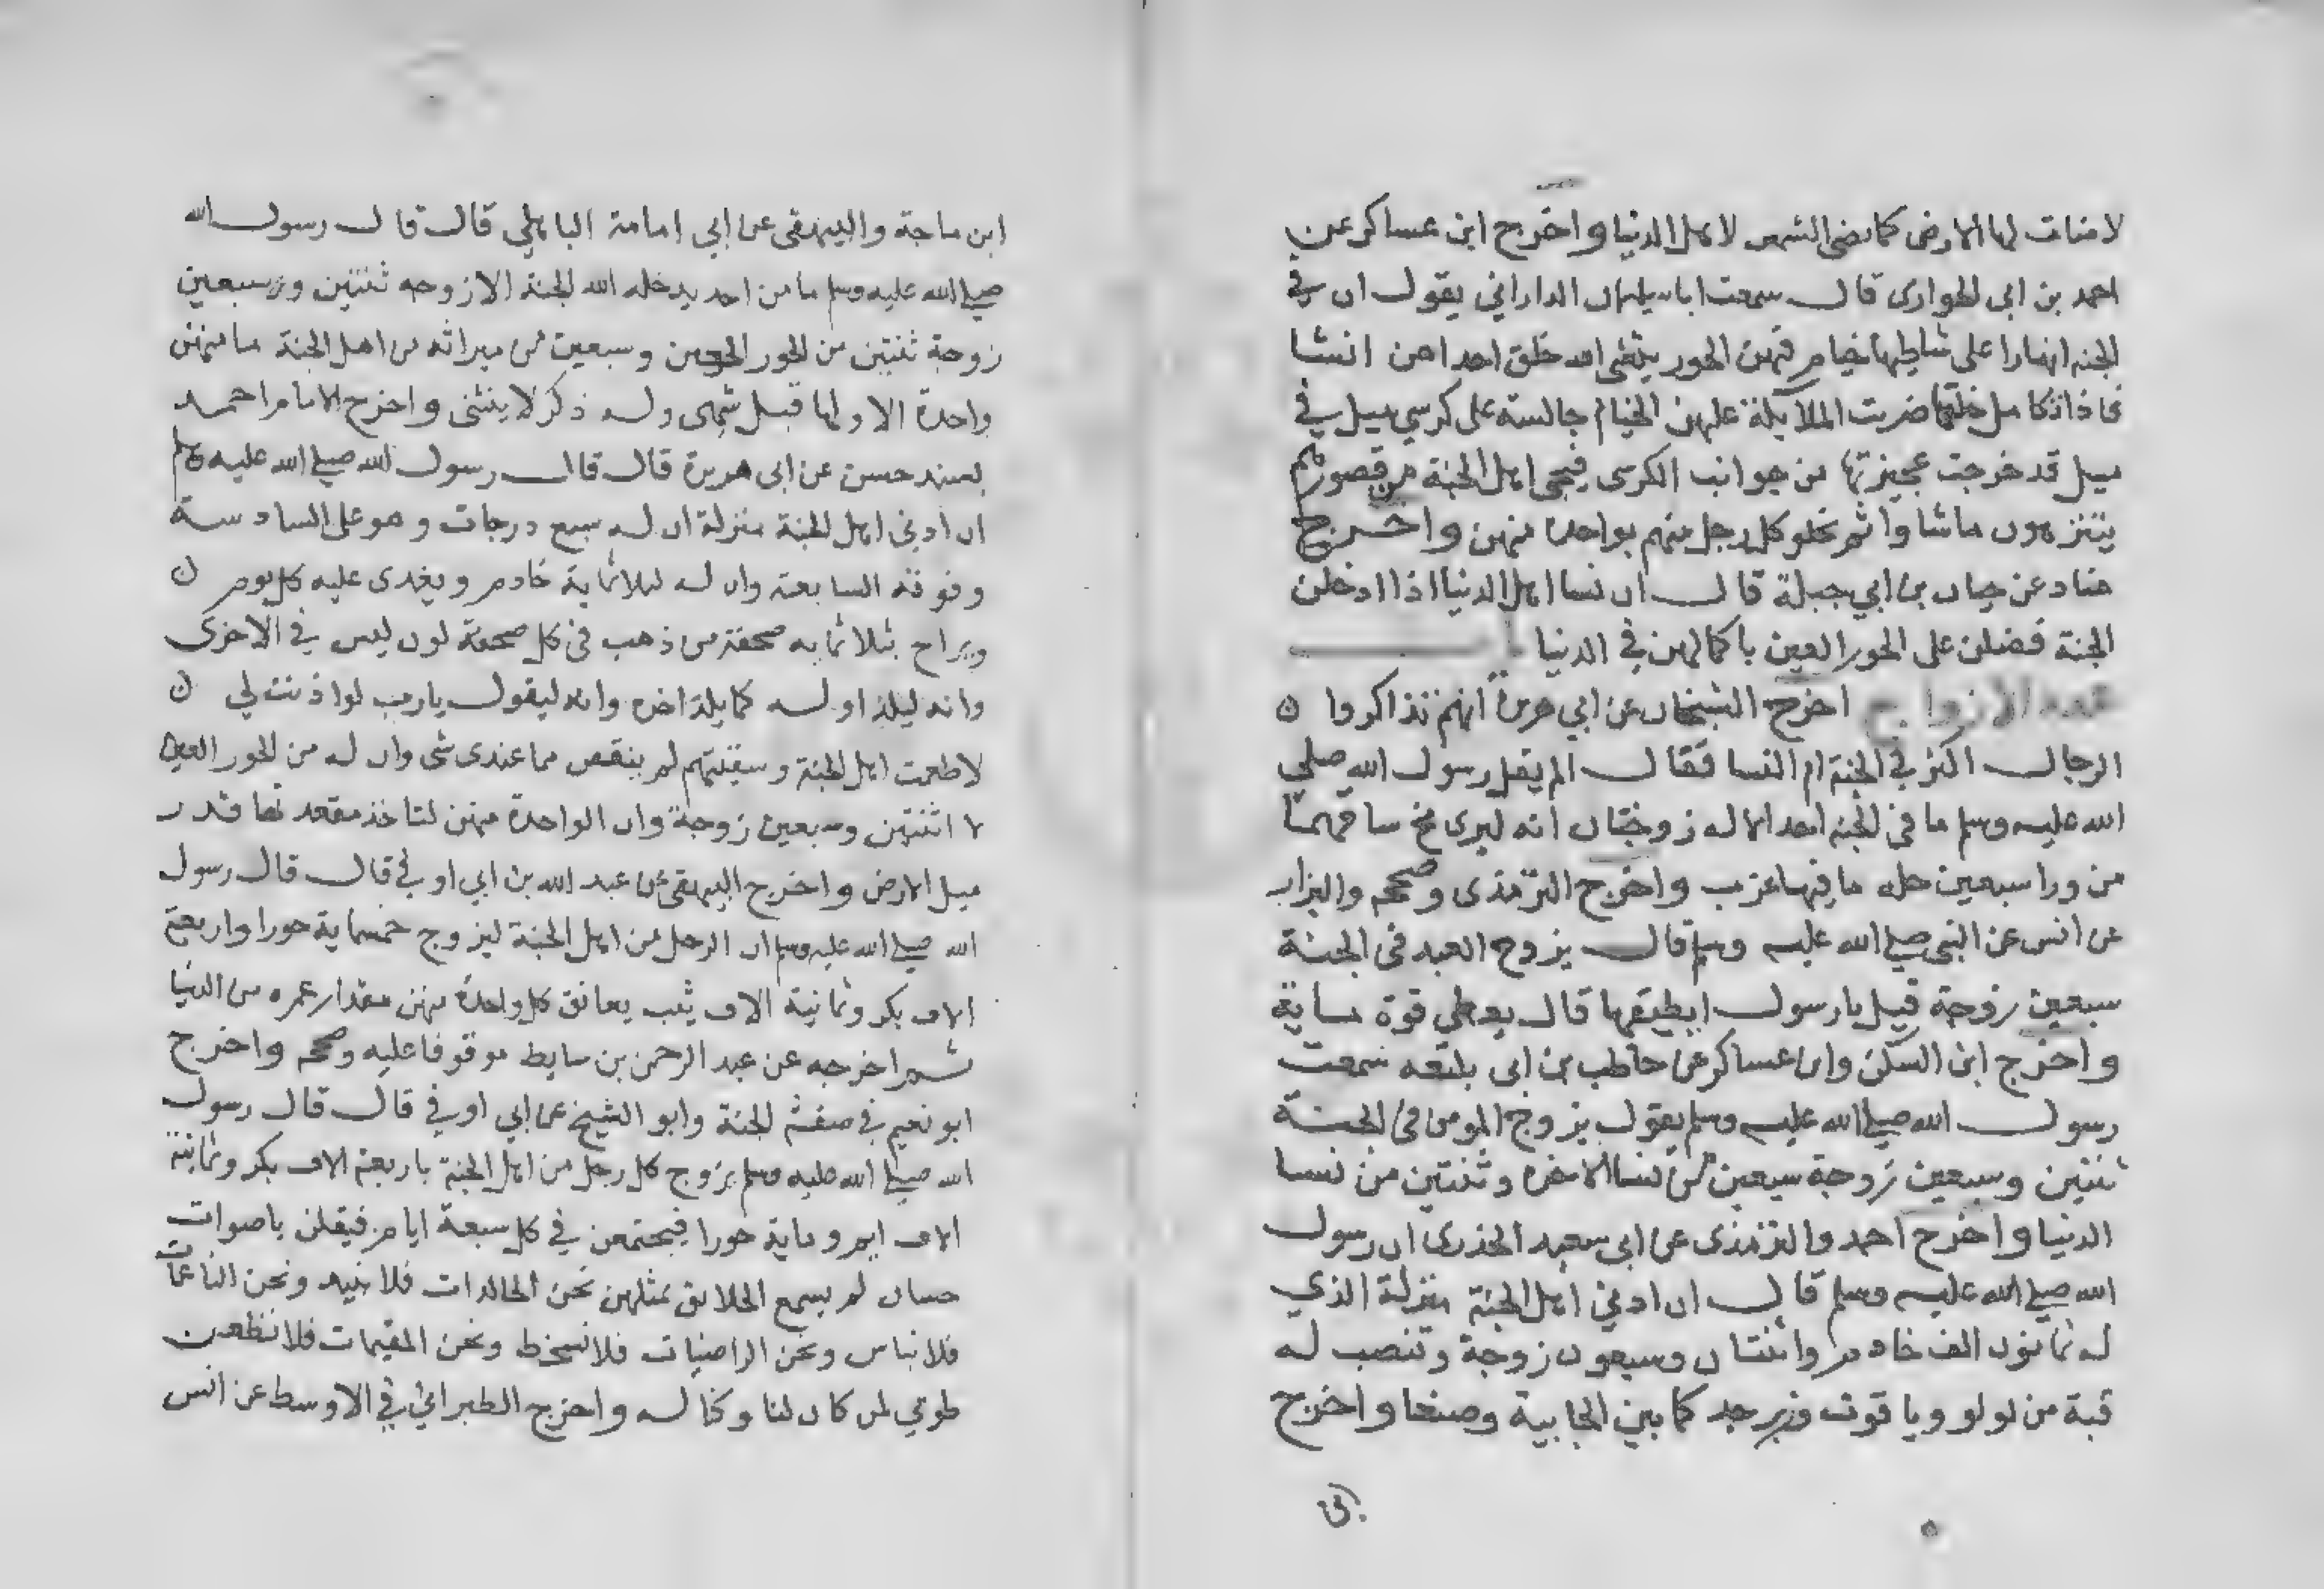 لاضات لها الارض كما تضى الشمس لاهل الدنيا واخرج ابن عساكر عن
احمد بن ابى الحوارى قال سمعت ابا سليمان الدارانى يقول ان في
الجنه انهارا على شاطيها خيام فيهن الحور ينشى الله خلق احداهن انشا
فاذا تكامل خلقها ضربت الملايكة عليهن الخيام جالسة على كرسي ميل في
ميل قد خرجت عجيزتها من جوانب الكرسى فيجى اهل الجنة من قصورهم
يتنزهون ماشاوا ثم يخلو كل رجل منهم بواحدة منهن واخرج
هناد عن حيان بن ابي جبلة قال ان نسا اهل الدنيا اذا ادخلن
الجنة فضلن على الحور العين باعمالهن في الدنيا
عدد الازواج اخرج الشيخان عن ابي هريرة انهم تذاكروا
الرجال اكثر في الجنة ام النسا فقال الم يقل رسول الله صلي
الله عليه وسلم ما فى الجنه احد الا له زوجتان انه ليرى مخ ساقهما
من ورا سبعين حله ما فيها عزب واخرج الترمذى وصححه والبزار
عن انس عن النبى صلي الله عليه وسلم قال يزوج العبد فى الجنة
سبعين زوجة قيل يا رسول ايطيقها قال يعطي قوة ماية
واخرج ابن السكن وابن عساكر عن حاطب بن ابى بلتعه سمعت
رسول الله صلي الله عليه وسلم يقول يزوج المومن فى الجنة
ثنتين وسبعين زوجة سبعين من نسا الاخره وثنتين من نسا
الدنيا واخرج احمد والترمذى عن ابى سعيد الخذرى ان رسول
الله صلي الله عليه وسلم قال ان ادني اهل الجنة منزلة الذي
له ثمانون الف خادم واثنتان وسبعون زوجة وتنصب له
قبة من لولو وياقوت وزبرجد كما بين الجابية وصنعا واخرج
ابن ماجة والبيهقى عن ابي امامة الباهلي قال قال رسول الله
صلي الله عليه وسلم ما من احد يدخله الله الجنة الا زوجه ثنتين وسبعين
زوجة ثنتين من الحور العين وسبعين من ميراثه من اهل الجنة ما منهن
واحدة الا ولها قبل شهى وله ذكر لا ينثنى واخرج الامام احمد
بسند حسن عن ابى هريرة قال قال رسول الله صلي الله عليه وسلم
ان ادنى اهل الجنة منزلة ان له سبع درجات وهو على السادسة
وفوقه السابعة وان له لثلاثماية خادم ويغدى عليه كل يوم
ويراح بثلاثمايه صحفة من ذهب فى كل صحفة لون ليس في الاخرى
وانه ليلذ اوله كما يلذ اخره وانه ليقول يا رب لو اذنت لي
لاطعمت اهل الجنة وسقيتهم لم ينقص مما عندى شى وان له من الحور العين
لاثنتين وسبعين زوجة وان الواحدة منهن لتاخذ مقعدتها قدر
ميل الارض واخرج البيهقى عن عبد الله بن ابي اوفي قال قال رسول
الله صلي الله عليه وسلم ان الرجل من اهل الجنة ليزوج خمسماية حورا واربعة
الاف بكر وثمانية الاف ثيب يعانق كل واحدة منهن مقدار عمره من الدنيا
ثم اخرجه عن عبد الرحمن بن سابط موقوفا عليه وصححه واخرج
ابو نعيم في صفة الجنة وابو الشيخ عن ابي اوفي قال قال رسول
الله صلي الله عليه وسلم يزوج كل رجل من اهل الجنة باربعة الاف بكر وثمانية
الاف ايم وماية حورا فيجتمعن في كل سبعة ايام فيقلن باصوات
حسان لم يسمع الخلايق بمثلهن نحن الخالدات فلا نبيد ونحن الناعمات
فلا نباس ونحن الراضيات فلا نسخط ونحن المقيمات فلا نظعن
طوبي لمن كان لنا وكنا له واخرج الطبراني في الاوسط عن انس